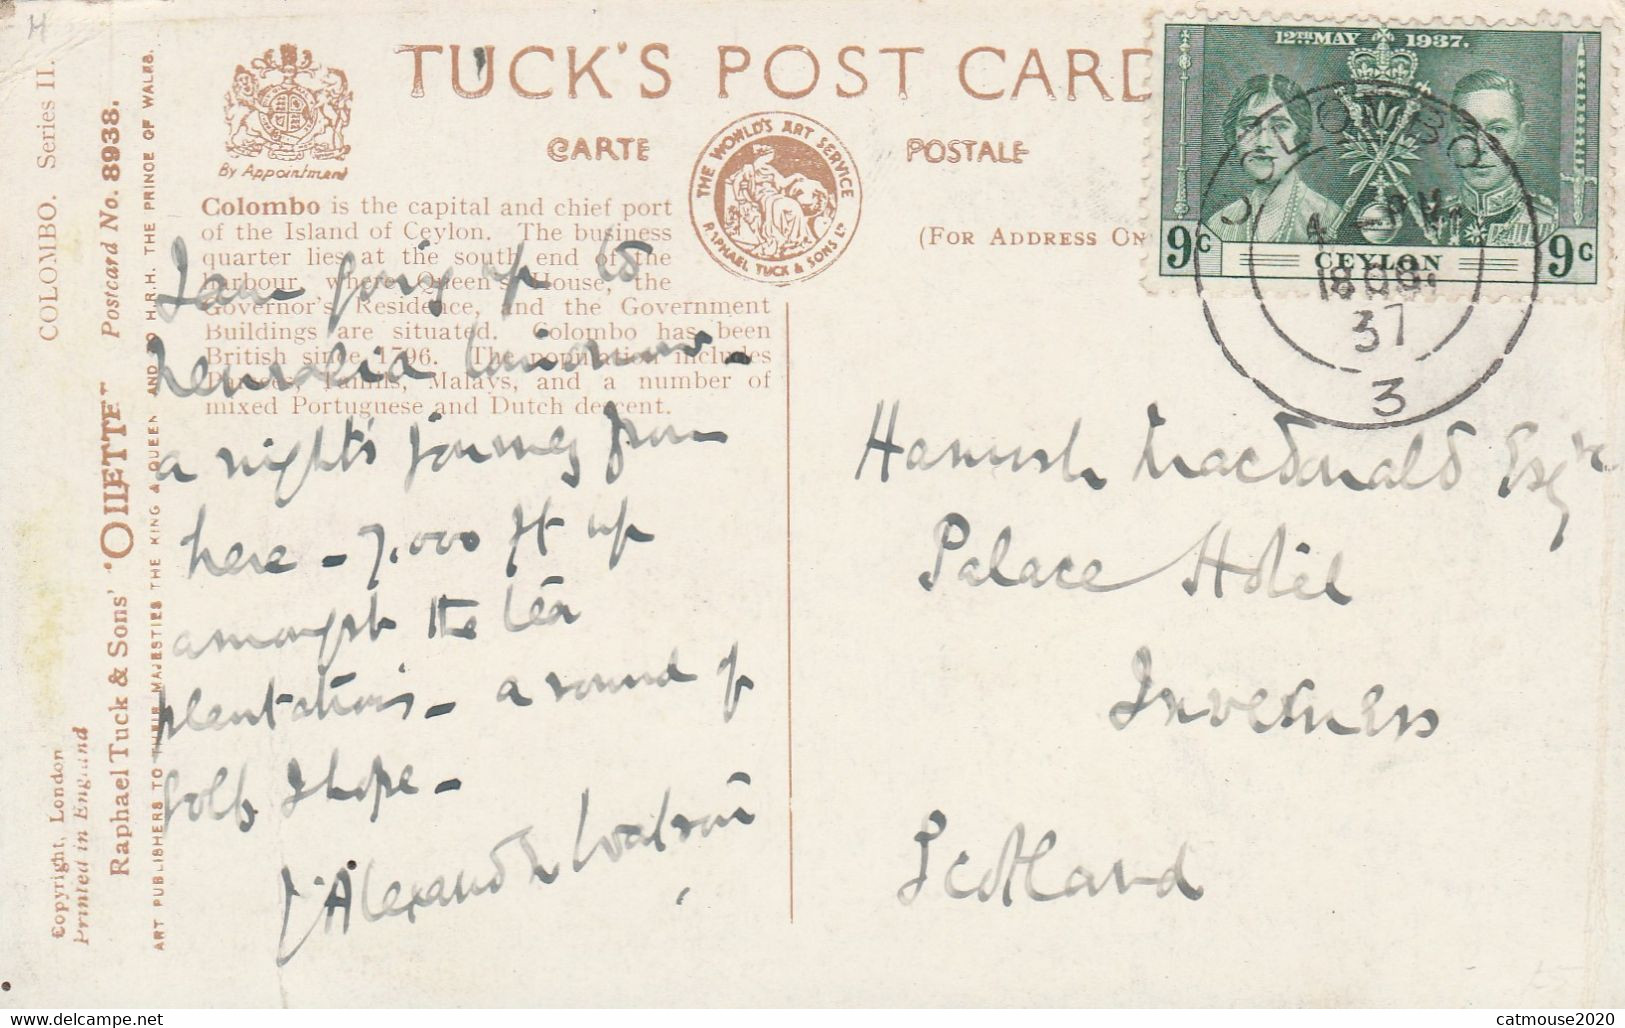 H
TUCK'S POST CARD
CARTE POSTALE
By Appointment
THE WORLD'S ART SERVICE
RAPHAEL TUCK & SONS LD
(FOR ADDRESS ON
Colombo is the capital and chief port
of the Island of Ceylon. The business
quarter lies at the south end of the
harbour, where Queen's House, the
Governor's Residence, and the Government
Buildings are situated. Colombo has been
British since 1796. The population includes
Tamils, Malays, and a number of
mixed Portuguese and Dutch descent.
COLOMBO. Series II.
Postcard No. 8938.
Raphael Tuck & Sons' "OILETTE"
ART PUBLISHERS TO THEIR MAJESTIES THE KING & QUEEN AND TO H.R.H. THE PRINCE OF WALES.
Copyright, London
Printed in England
I am going up to
a night's journey from
here - 7,000 ft up
amongst the tea
plantations - a round of
golf I hope -
Alexander Watson
12TH MAY 1937.
9c CEYLON 9c
COLOMBO
4 - PM
37
3
Hamish MacDonald Esqre
Palace Hotel
Inverness
Scotland
catmouse2020